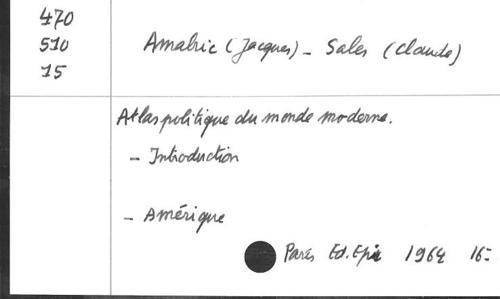 470
510
15
Amalric (Jacques) - Sales (Claude)
Atlas politique du monde moderne.
- Introduction
- Amérique
Paris Ed. Epi 1964 16-